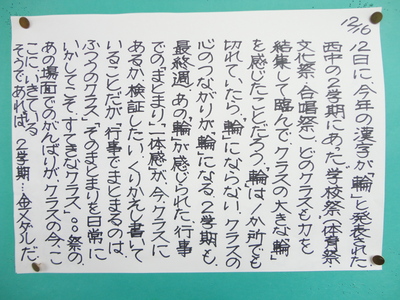 12/16
12日に、今年の漢字が「輪」と発表された。
西中の2学期にあった、学校祭(体育祭・
文化祭・合唱祭)。どのクラスも力を
結集して臨んで、クラスの大きな「輪」
を感じたことだろう。「輪」は1か所でも
切れていたら、「輪」にならない。クラスの
心のつながりが、「輪」になる。2学期も
最終週。あの「輪」が感じられた、行事
での「まとまり」「一体感」が今、クラスに
あるか検証したい。くりかえし書いて
いることだが、行事でまとまるのは、
ふつうのクラス。そのまとまりを日常に
いかしてこそ、「すてきなクラス」。○○祭の
あの場面でのがんばりが、クラスの今、こ
こに、いきている
そうであれば、2学期…金メダルだ。